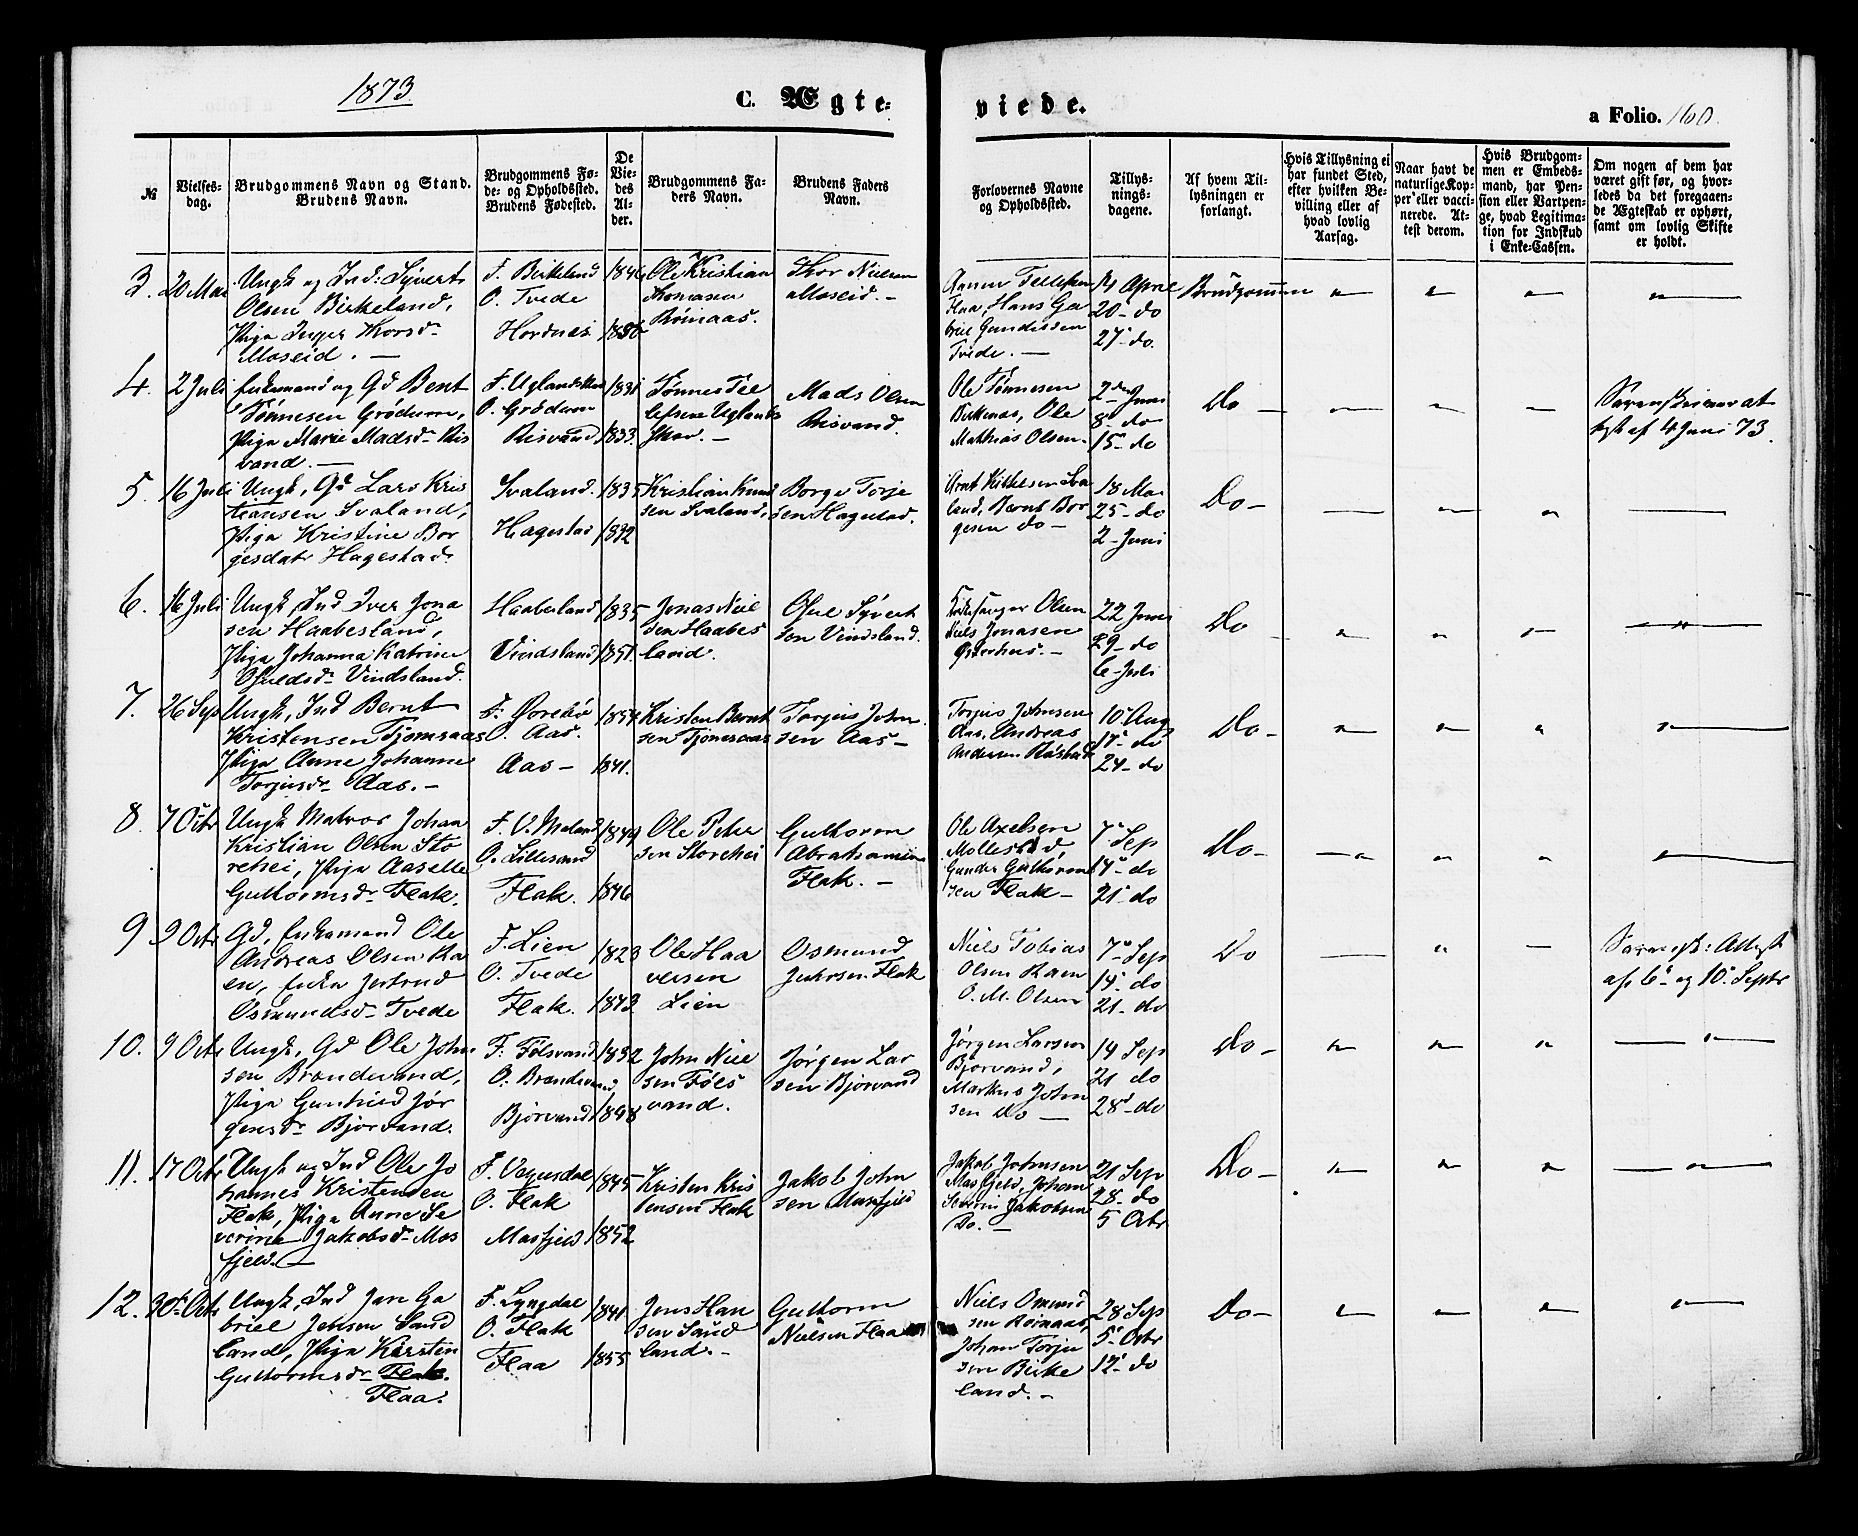 1873
C. Ægte-
viede.
a Folio. 160.
№
Vielses-
dag.
Brudgommens Navn og Stand.
Brudens Navn.
Brudgommens Fø-
de- og Opholdssted.
Brudens Fødested.
De
Vie-
des
Al-
der.
Brudgommens Fa-
ders Navn.
Brudens Faders
Navn.
Forlovernes Navne
og Opholdssted.
Tillys-
nings-
dagene.
Af hvem Til-
lysningen er
forlangt.
Hvis Tillysning ei
har fundet Sted,
efter hvilken Be-
villing eller af
hvad lovlig
Aarsag.
Naar havt de
naturlige Kop-
per eller vacci-
nerede. At-
test derom.
Hvis Brudgom-
men er Embeds-
mand, har Pen-
sion eller Vartpen-
ge, hvad Legitima-
tion for Indskud
i Enke-Cassen.
Om nogen af dem har
været gift før, og hvor-
ledes da det foregaaen-
de Ægteskab er ophørt,
samt om lovlig Skifte
er holdt.
3. 20 Mai
Ungk og Ind: Syvert
Olsen Birkeland,
Pige Inger Thorsdr
Moseid. —
F. Birkeland
O. Tvede
Hordnes
1846
Ole Kristian
Thomasen
Røinaas.
Thor Nielsen
Moseid. —
Tellefsen
Flaa, Hans Ga
briel Gundersen
Tvede. —
April
20 - do
27 - do.
Brudgommen
4. 2 Juli
Enkemand og Gd Bent
Tønnesen Grødum,
Pige Marie Madsdr Ris
vand. —
F. Uglands
O. Grødum
Risvand
1831
1833.
Tønnes Tel
lefsen Uglands
skov. —
Mads Olsen
Risvand.
Ole Tønnesen
Birkenes, Ole
Mathias Olsen.
2 Juni
8 - do
15 - do
Do —
af 4 Juni 73.
5. 16 Juli
Ungk, Gd Lars Kris
tiansen Svaland,
Pige Kristine Bor
gesdatr Hagestad.
Svaland.
Hagestad
1835
Kristian Knud
sen Svaland,
Borge Torje
sen Hagestad.
land, Bernt Bor
gesen do —
18 Mai
25 - do
2 - Juni
Do —
6. 16 Juli
Ungk, Ind Iver Jona
sen Haabesland,
Pige Johanna Katrine
Ofuldsdr Vindsland.
Haabesland
Vindsland
1835
1851.
Jonas Niel
sen Haabes
land.
Syvert
sen Vindsland.
Kirkesanger Olsen
Niels Jonasen
Østerhus. —
22 Juni
29 - do
6 - Juli
Do
7. 26 Sep
Ungk, Ind Bernt
Kristensen Tjomsaas
Pige Anne Johanne
Torjusdr Aas. —
O. Aas.
Aas —
1854
1841.
Kristen Bernt
sen Tjomsaas
Torjus John
sen Aas —
Torjus Johnsen
Aas, Andreas
Andersen
10 Aug
17 - do
24 - do
Do —
8. 7 Octr
Ungk Matros Johan
Kristian Olsen Sto
rehei, Pige Aaselle
Guttormsdr Flak.
F. V. Moland
O. Lillesand
Flak.
1849
1846
Ole Peder
sen Storehei
Guttorm
Abrahamsen
Flak. —
Ole Axelsen
Mollestad,
Gunder Guttorm
sen Flak —
7 Sep
14 - do
21 - do
Do —
9 9 Octr
Gd, Enkemand Ole
Andreas Olsen Ra
en, Enke Jertrud
Osmundsdr Tvede
F. Lien
O. Tvede
Flak.
1823
Ole Haa
versen
Lien
Osmund
Flak
Niels Tobias
Olsen Raen
O. M. Olsen
7 - Sep
14 - do
21 - do
Do
af 6 - og 10 Septr
10. 9 Octr
Ungk, Gd Ole John
sen Brandevand,
Pige Gunhild Jør
gensdr Bjorvand.
F: Følsvand
O. Brandevand
Bjorvand
1832
1848
John Niel
sen Føls
vand.
Jørgen Lar
sen Bjorvand
Jørgen Larsen
Bjorvand,
Markus John
sen do —
14 Sep
21 do
28 - do
Do —
11. 17 Octr
Ungk og Ind Ole Jo
hannes Kristensen
Flak, Pige Anne Se
verine Jakobsdr Mos
fjeld. —
F. Vegusdal
O. Flak
Mosfjeld
1845
1852
Kristen Kris
tensen Flak
Jakob John
sen Mosfjeld
Jakob Johnsen
Mosfjeld, Johan
Severin Jakobsen
Do. —
21 Sep
28 - do
5 Octr
Do —
12. 30 Octr
Ungk, Ind Jan Ga
briel Jensen Sand
land, Pige Kirsten
Guttormsdr Flak.
Flaa.
F. Lyngdal
O. Flak
Flaa
1841
1855
Jens Han
sen Sand
land. —
Guttorm
Nielsen Flaa
Niels Omund
sen Røinaas,
Johan Torju
sen Birke
land. —
28 Sep
5 Octr
12 do
Do —